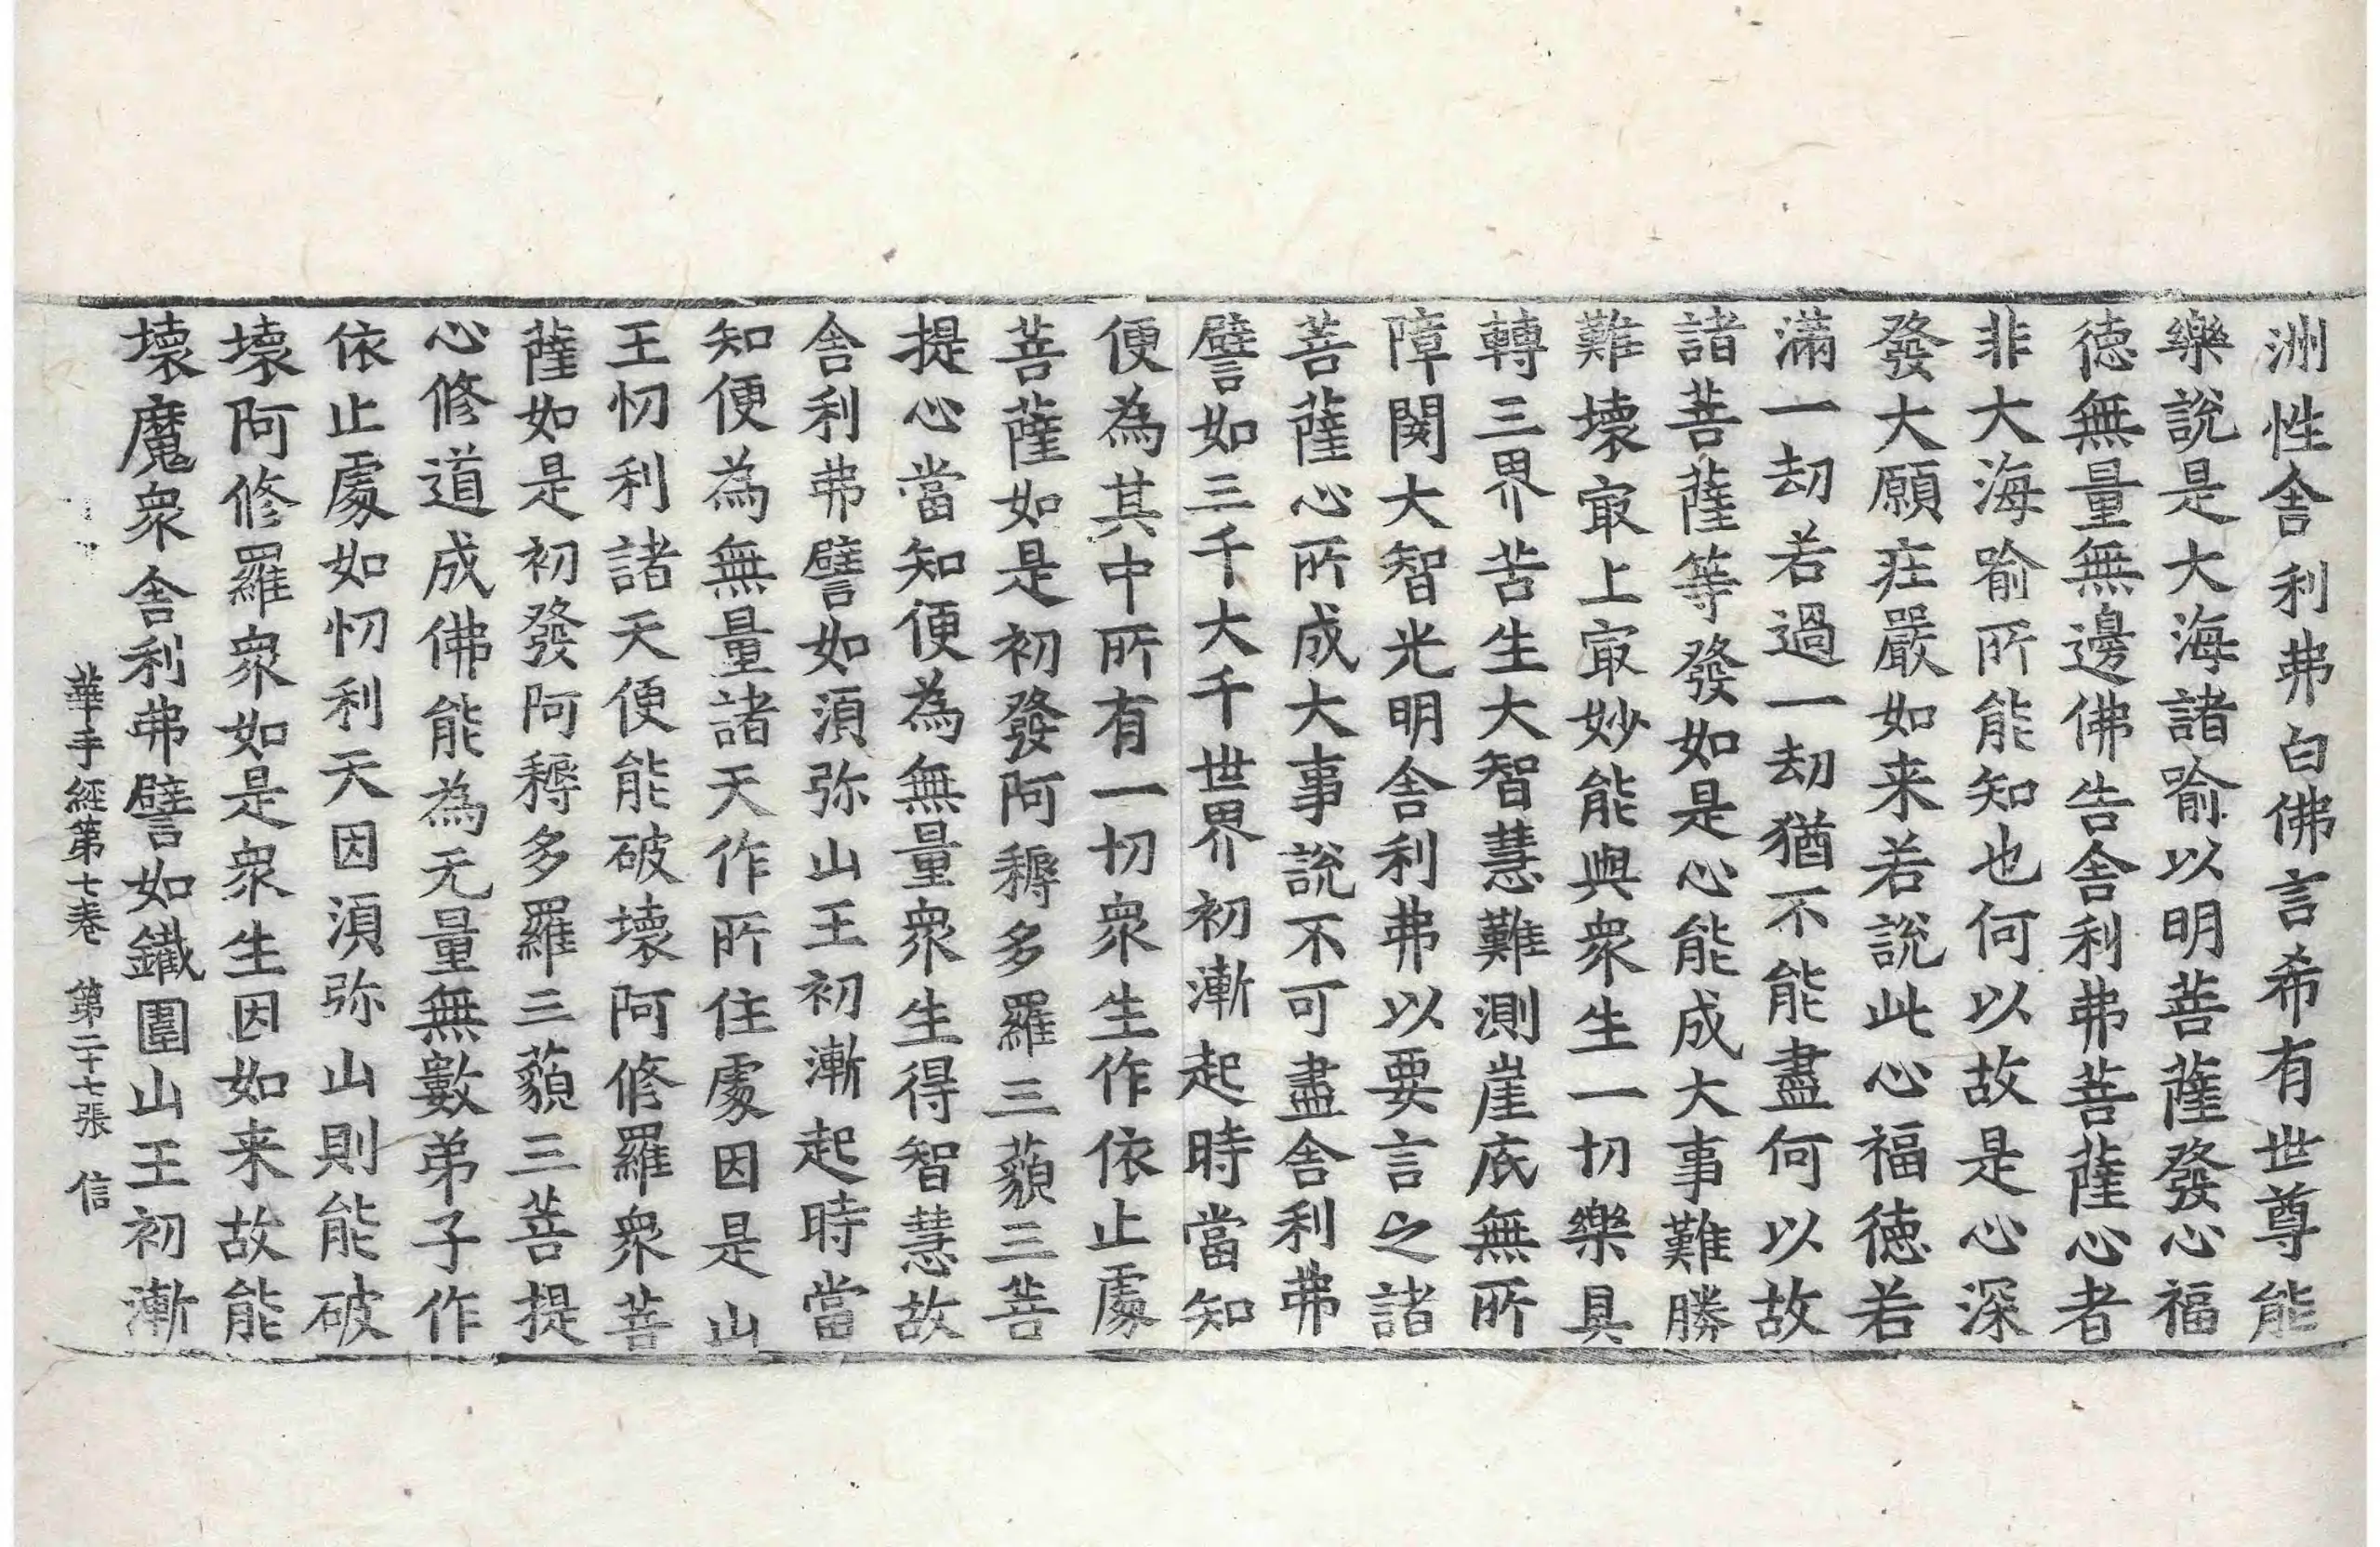 洲性舍利弗白佛言希有世尊能
樂說是大海諸喻以明菩薩發心福
德無量無邊佛告舍利弗菩薩心者
非大海喻所能知也何以故是心深
發大願疰嚴如来若說此心福德若
滿一劫若過一劫猶不能盡何以故
諸菩薩等發如是心能成大事難勝
難壞㝡上㝡妙能與衆生一切樂具
轉三界苦生大智慧難測崖底無所
障閡大智光明舍利弗以要言之諸
菩薩心所成大事說不可盡舍利弗
譬如三千大千世界初漸起時當知
便為其中所有一切衆生作依止處
菩薩如是初發阿耨多羅三藐三菩
提心當知便為無量衆生得智慧故
舍利弗譬如湏弥山王初漸起時當
知便為無量諸天作所住處因是山
王忉利諸天便能破壞阿修羅衆菩
薩如是初發阿耨多羅三藐三菩提
心修道成佛能為无量無數弟子作
依止處如忉利天因湏弥山則能破
壞阿修羅衆如是衆生因如来故能
壞魔衆舍利弗譬如鐵圍山王初漸
華手經第七卷 第二十七張 信